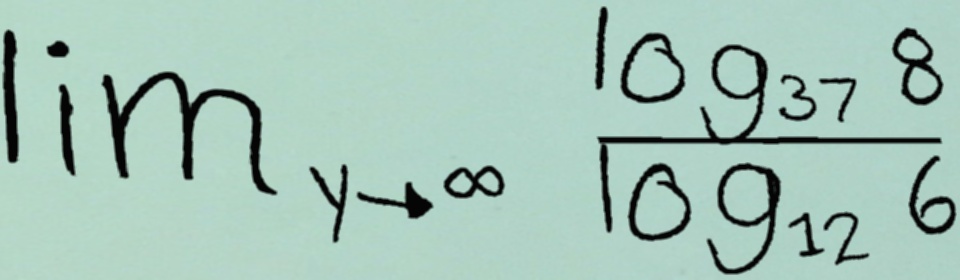 lim y→∞ log37 8
log12 6